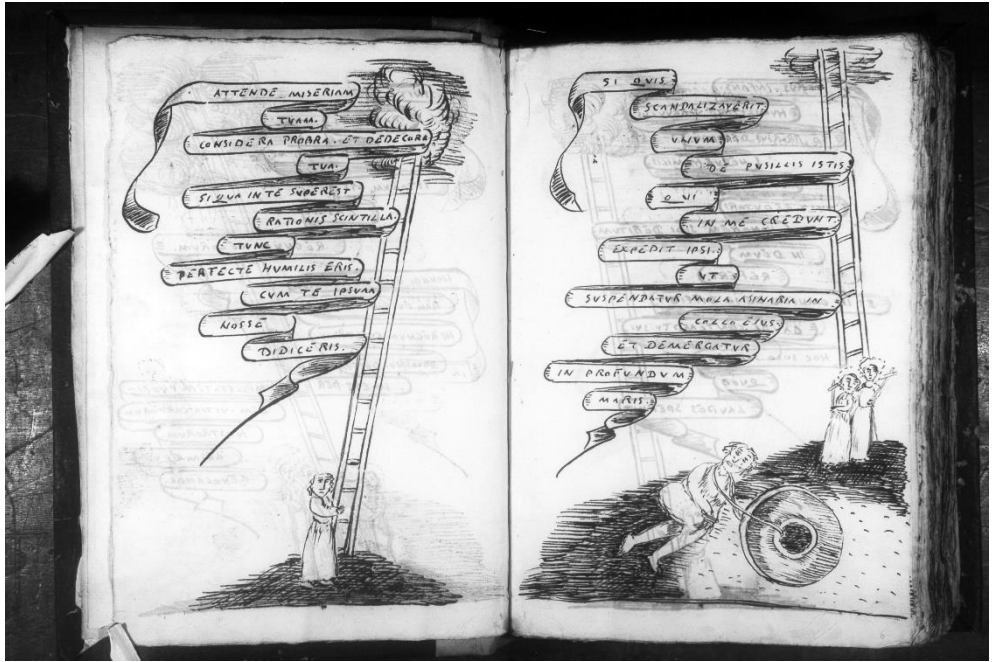 ATTENDE MISERIAM
TVAM.
CONSIDERA PROBRA. ET DEDECORA
TVA.
SI QVA IN TE SVPEREST
RATIONIS SCINTILLA.
TVNC
PERFECTE HVMILIS ERIS.
CVM TE IPSVM
NOSSE
DIDICERIS.
SI QVIS
SCANDALIZAVERIT.
VNVM
DE PVSILLIS ISTIS
QVI
IN ME CREDVNT.
EXPEDIT IPSI.
VT
SVSPENDATVR MOLA ASINARIA IN
COLLO EIVS.
ET DEMERGATVR
IN PROFVNDVM
MARIS.
6